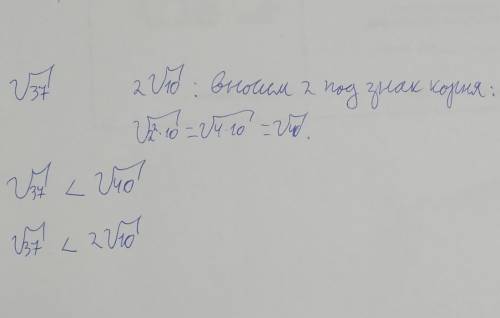 √37 2√10 : вносим 2 под знак корня:
√2²·10 = √4·10 = √40.
√37 < √40
√37 < 2√10